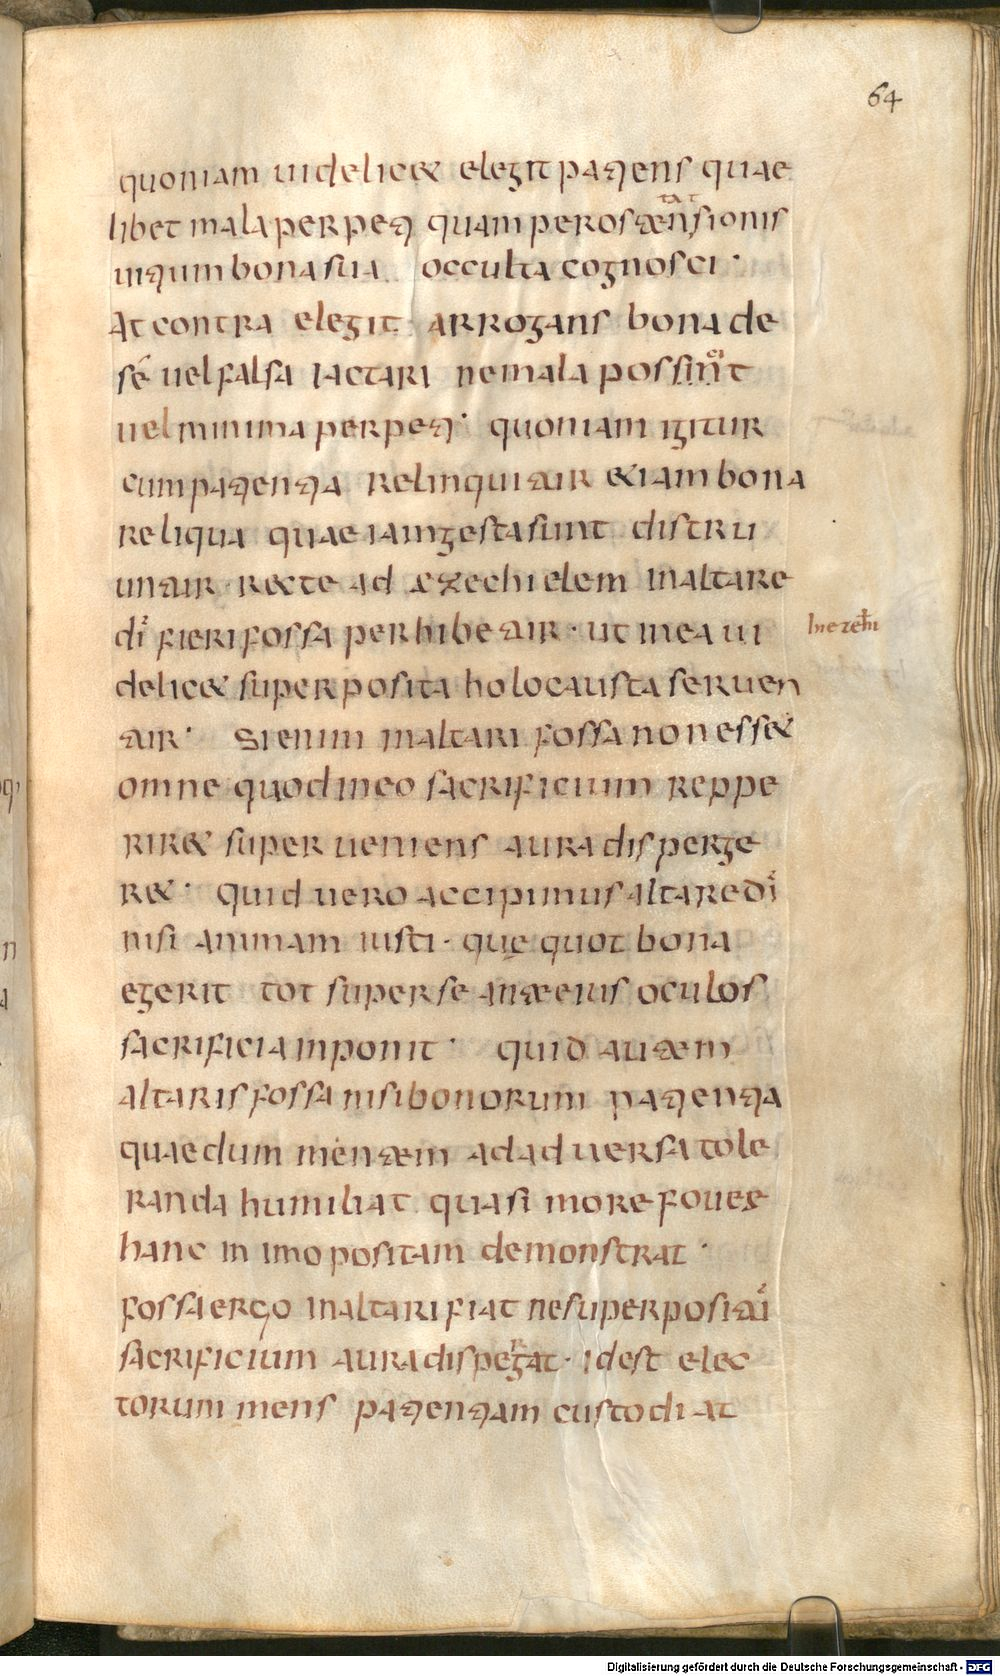 64
quoniam uidelicet elegit patiens quae
libet mala perpeti quam per ostentationis
uitium bona sua occulta cognosci ·
At contra elegit arrogans bona de
sē uel falsa iactari ne mala possint
uel minima perpeti · quoniam igitur
cum patientia relinquitur etiam bona
reliqua quae iam gesta sunt distru
untur · recte ad ezechielem in altare
dī fieri fossa perhibetur · ut in ea ui
in ezeh
delicet superposita holocausta seruen
tur · Si enim in altari fossa non esset
omne quod in eo sacrificium reppe
riret superueniens aura disperge
ret · quid uero accipimus altare dī
nisi animam iusti · quę quot bona
egerit tot super se ante eius oculos
sacrificia imponit · quid autem
altaris fossa nisi bonorum patientia
quae dum mentem ad aduersa tole
randa humiliat quasi more foueę
hanc in imo positam demonstrat ·
fossa ergo in altari fiat ne superpositū
sacrificium aura dispergat · idest elec
torum mens patientiam custodiat
Digitalisierung gefördert durch die Deutsche Forschungsgemeinschaft - DFG